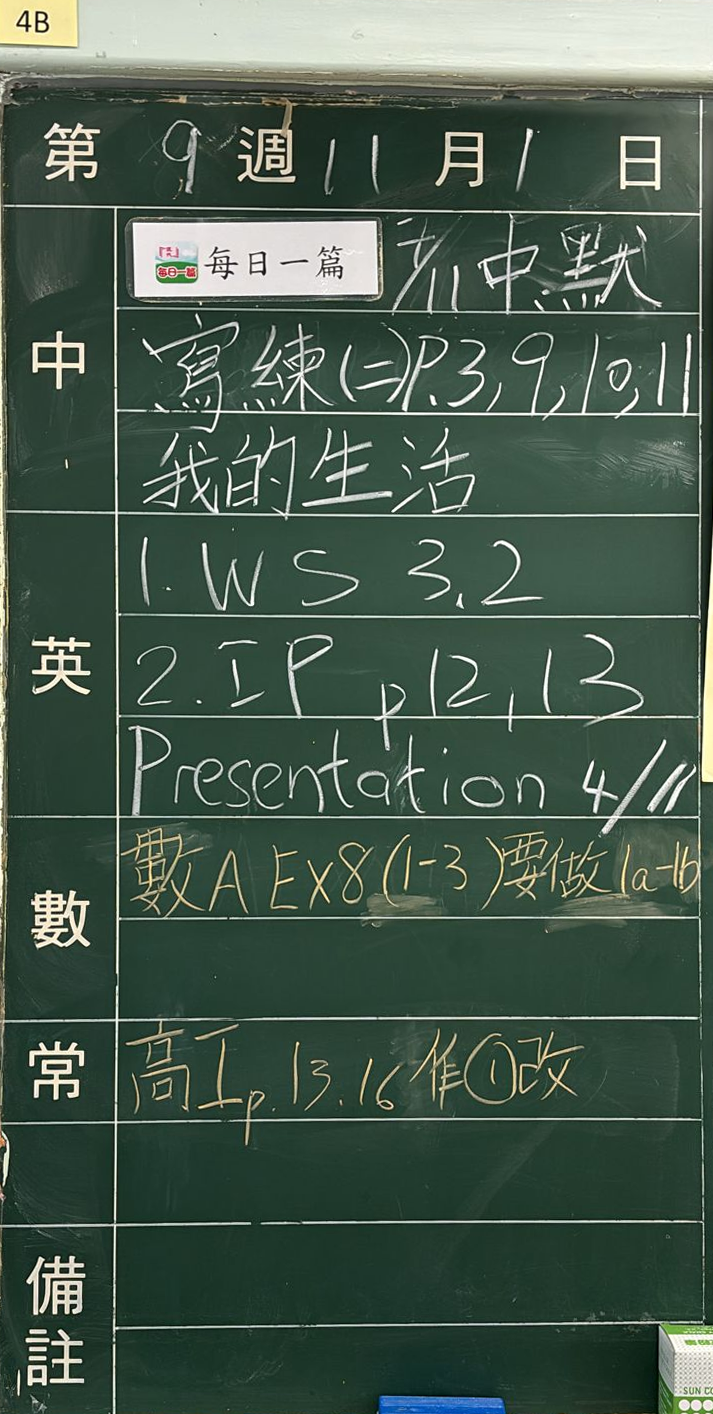 4B
第 9 週 11 月 1 日
中
每日一篇 每日一篇 7/11 中默
寫練(二)P.3,9,10,11
我的生活
英
1. WS 3.2
2. IP p12,13
Presentation 4/11
數
數A EX8 (1-3) 要做 1a-1b
常
高I p.13.16 作①改
備註
SUN CO